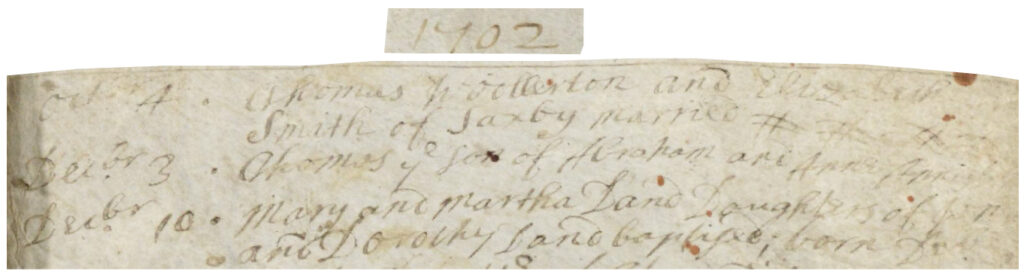 1702
Octr 4. Thomas Woollerton and Elizabeth
Smith of Saxby married
Decbr 3. Thomas ye Son of Abraham and Anne
Decbr 10. Mary and Martha Land Daughters of Jon
and Dorothy Land baptised, born Decr